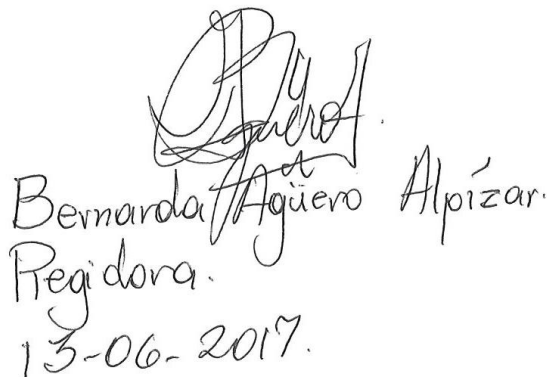 Bernarda Agüero Alpízar.
Regidora.
13-06-2017.